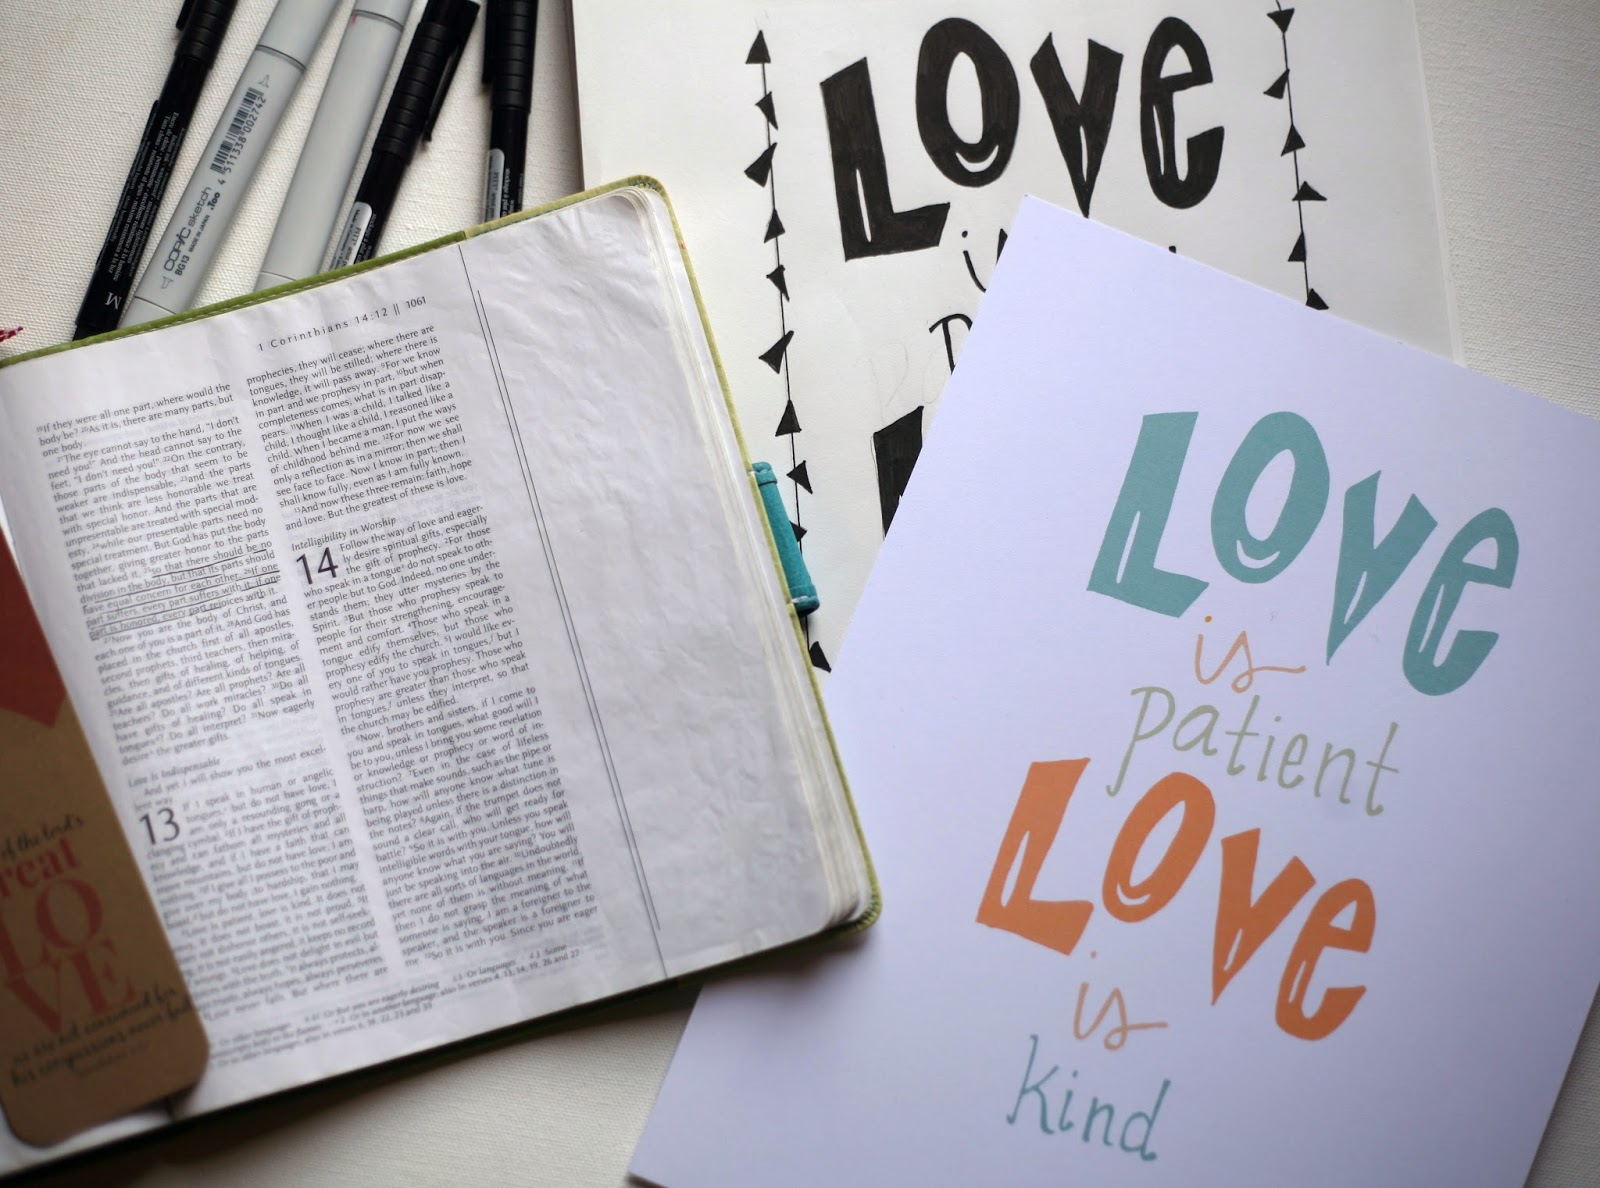 COPIC sketch
.Too
BG13
4511338002742
M
1 Corinthians 14:12 || 1061
¹⁹If they were all one part, where would the
body be? ²⁰As it is, there are many parts, but
one body.
²¹The eye cannot say to the hand, "I don't
need you!" And the head cannot say to the
feet, "I don't need you!" ²²On the contrary,
those parts of the body that seem to be
weaker are indispensable, ²³and the parts
that we think are less honorable we treat
with special honor. And the parts that are
unpresentable are treated with special mod-
esty, ²⁴while our presentable parts need no
special treatment. But God has put the body
together, giving greater honor to the parts
that lacked it, ²⁵so that there should be no
division in the body, but that its parts should
have equal concern for each other. ²⁶If one
part suffers, every part suffers with it; if one
part is honored, every part rejoices with it.
²⁷Now you are the body of Christ, and
each one of you is a part of it. ²⁸And God has
placed in the church first of all apostles,
second prophets, third teachers, then mira-
cles, then gifts of healing, of helping, of
guidance, and of different kinds of tongues.
²⁹Are all apostles? Are all prophets? Are all
teachers? Do all work miracles? ³⁰Do all
have gifts of healing? Do all speak in
tongues? Do all interpret? ³¹Now eagerly
desire the greater gifts.
Love Is Indispensable
And yet I will show you the most excel-
lent way.
13 If I speak in human or angelic
tongues, but do not have love, I
am only a resounding gong or a
clanging cymbal. ²If I have the gift of proph-
ecy and can fathom all mysteries and all
knowledge, and if I have a faith that can
move mountains, but do not have love, I am
nothing. ³If I give all I possess to the poor and
give over my body to hardship that I may
boast, but do not have love, I gain nothing.
⁴Love is patient, love is kind. It does not
envy, it does not boast, it is not proud. ⁵It
does not dishonor others, it is not self-seek-
ing, it is not easily angered, it keeps no record
of wrongs. ⁶Love does not delight in evil but
rejoices with the truth. ⁷It always protects, al-
ways trusts, always hopes, always perseveres.
⁸Love never fails. But where there are
prophecies, they will cease; where there are
tongues, they will be stilled; where there is
knowledge, it will pass away. ⁹For we know
in part and we prophesy in part, ¹⁰but when
completeness comes, what is in part disap-
pears. ¹¹When I was a child, I talked like a
child, I thought like a child, I reasoned like a
child. When I became a man, I put the ways
of childhood behind me. ¹²For now we see
only a reflection as in a mirror; then we shall
see face to face. Now I know in part; then I
shall know fully, even as I am fully known.
¹³And now these three remain: faith, hope
and love. But the greatest of these is love.
Intelligibility in Worship
14 Follow the way of love and eager-
ly desire spiritual gifts, especially
the gift of prophecy. ²For those
who speak in a tongue do not speak to oth-
er people but to God. Indeed, no one under-
stands them; they utter mysteries by the
Spirit. ³But those who prophesy speak to
people for their strengthening, encourage-
ment and comfort. ⁴Those who speak in a
tongue edify themselves, but those who
prophesy edify the church. ⁵I would like ev-
ery one of you to speak in tongues, but I
would rather have you prophesy. Those who
prophesy are greater than those who speak
in tongues, unless they interpret, so that
the church may be edified.
⁶Now, brothers and sisters, if I come to
you and speak in tongues, what good will I
be to you, unless I bring you some revelation
or knowledge or prophecy or word of in-
struction? ⁷Even in the case of lifeless
things that make sounds, such as the pipe or
harp, how will anyone know what tune is
being played unless there is a distinction in
the notes? ⁸Again, if the trumpet does not
sound a clear call, who will get ready for
battle? ⁹So it is with you. Unless you speak
intelligible words with your tongue, how will
anyone know what you are saying? You will
just be speaking into the air. ¹⁰Undoubtedly
there are all sorts of languages in the world,
yet none of them is without meaning. ¹¹If
then I do not grasp the meaning of what
someone is saying, I am a foreigner to the
speaker, and the speaker is a foreigner to
me. ¹²So it is with you. Since you are eager
of the Lord's
reat
LOVE
we are not consumed for
his compassions never fail
LOVE
LOVE
is
patient
LOVE
is
kind